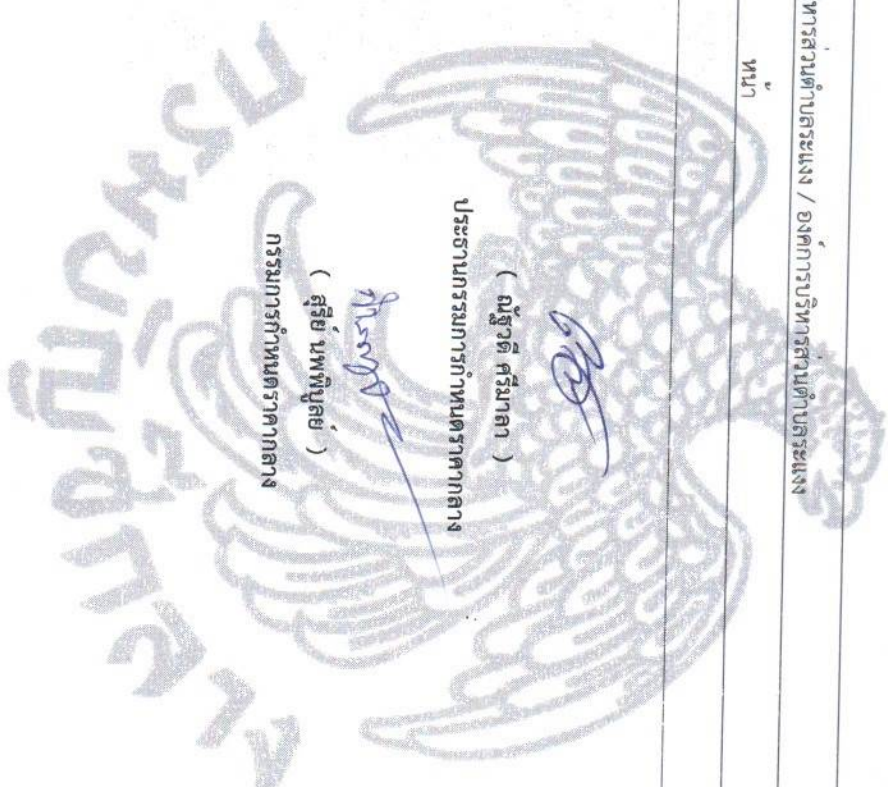 หารส่วนตำบลระแงง / องค์การบริหารส่วนตำบลระแงง
หน้า
( ณัฐวดี ศรีมาคา )
ประธานกรรมการกำหนดราคากลาง
( สุรีย์ นพพิบูลย์ )
กรรมการกำหนดราคากลาง
กรมบัญชีกลาง